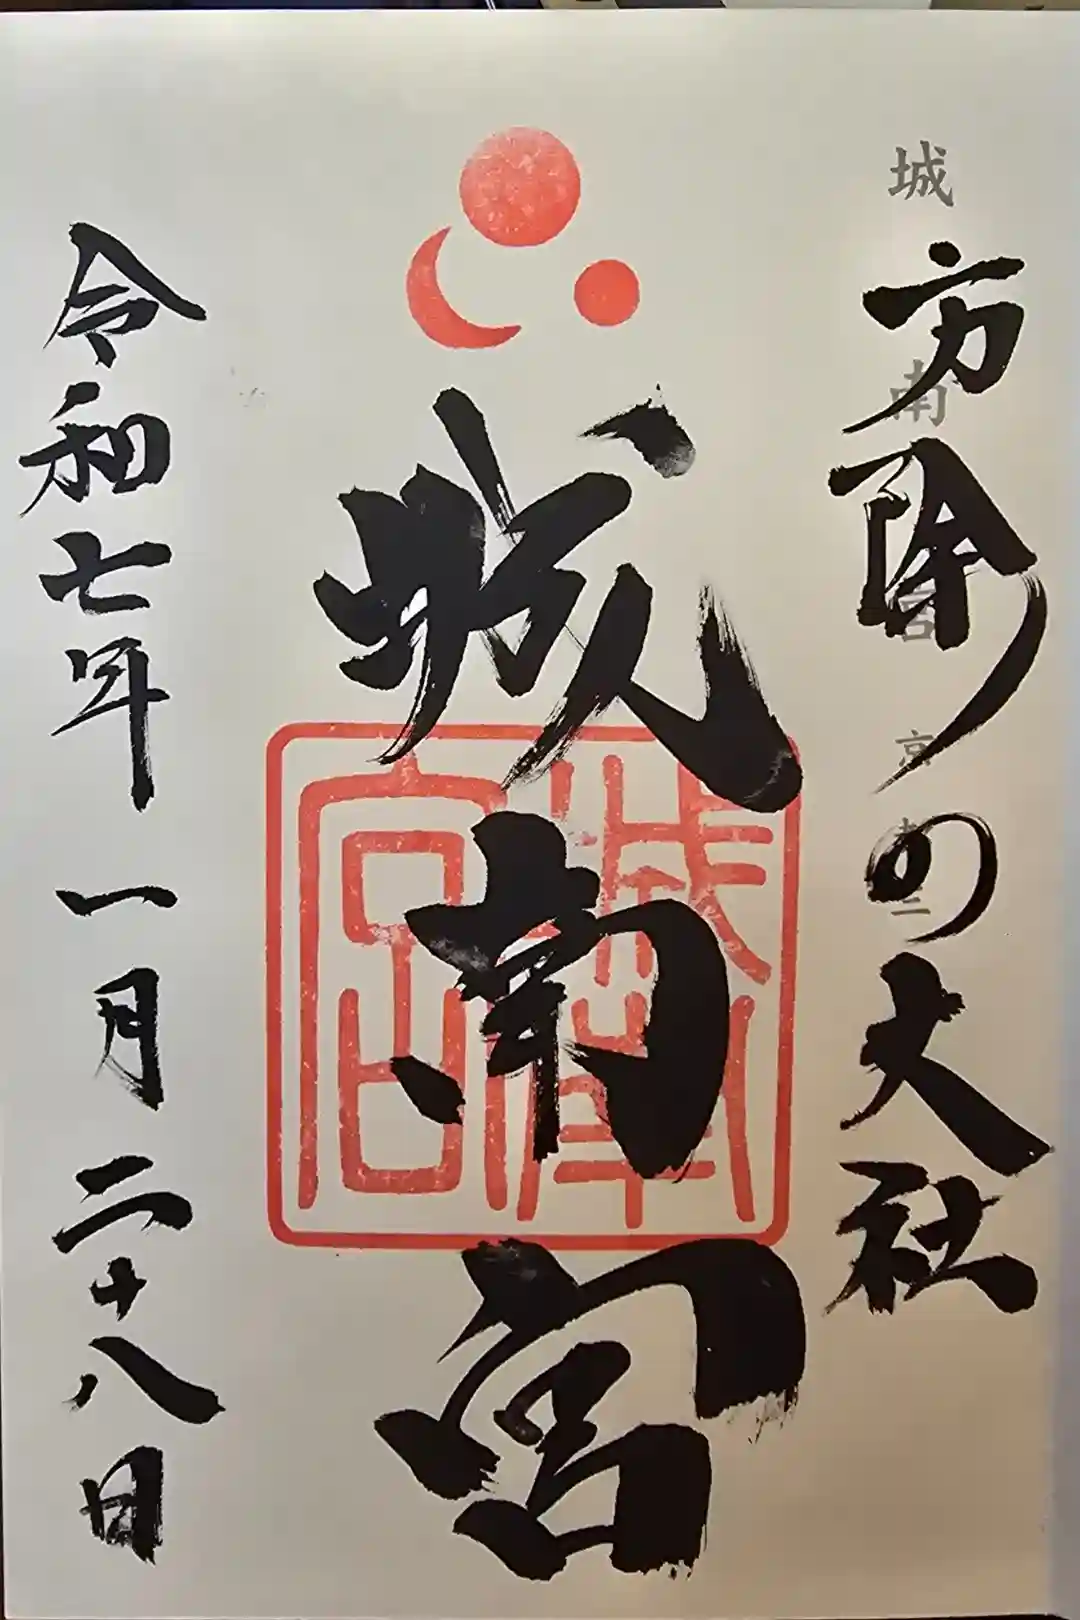 城南宮
方除の大社
城南宮
城南宮
令和七年一月二十八日